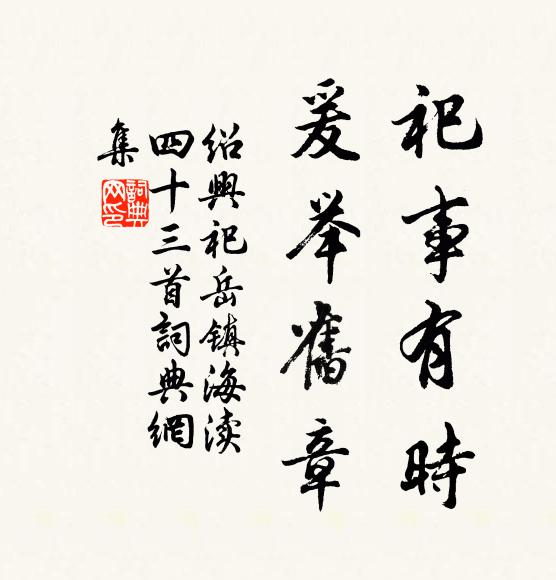 祀事有時
爰举舊章
绍興祀岳镇海渎
四十三首詞典網
集
詞典网印